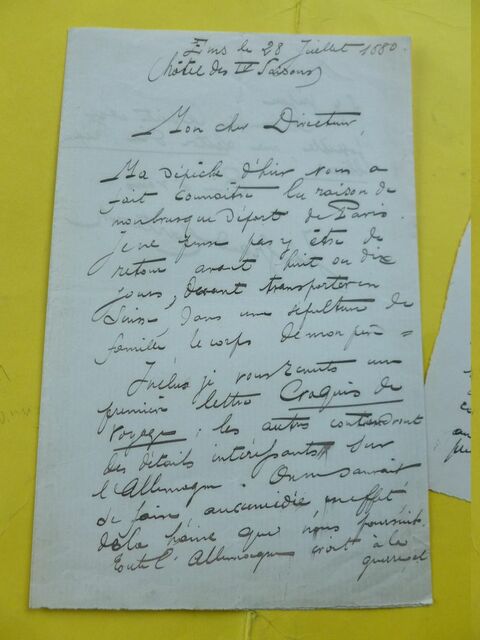 Ems le 28 Juillet 1880.
(hôtel des IV Saisons)
Mon cher Directeur,
Ma dépêche d'hier vous a
fait connaître la raison de
mon brusque départ de Paris.
Je ne pense pas y être de
retour avant huit ou dix
jours, devant transporter en
Suisse dans une sépulture de
famille le corps de mon père =
Inclus je vous remets une
première lettre Croquis de
voyage : les autres contiendront
des détails intéressants sur
l'Allemagne. On ne saurait
se faire aucune idée en effet
de la haine que nous poursuit.
Toute l'Allemagne croit à la
guerre et